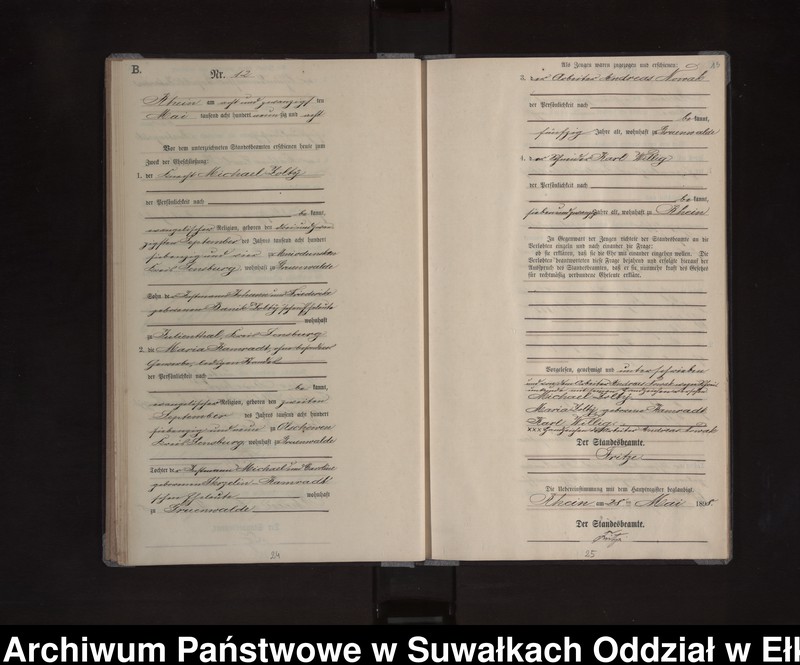 B.
Nr. 12
Rhein am acht und zwanzigsten
Mai tausend acht hundert neunzig und acht
Vor dem unterzeichneten Standesbeamten erschienen heute zum
Zweck der Eheschließung:
1. der Knecht Michael Zolty
der Persönlichkeit nach
be kannt,
evangelischer Religion, geboren den
September des Jahres tausend acht hundert
siebenzig und vier zu
Kreis Sensburg, wohnhaft zu Gruenwalde
Sohn der Johann und Friederike
geborenen
wohnhaft
zu Julienthal, Kreis Sensburg
2. die Maria Ramradt, ohne besonderes
Gewerbe, ledigen Standes
der Persönlichkeit nach
be kannt,
evangelischer Religion, geboren den zweiten
September des Jahres tausend acht hundert
siebenzig und neun zu
Kreis Sensburg, wohnhaft zu Gruenwalde
Tochter der Michael und Caroline
geborenen Ramradt
schen Eheleute wohnhaft
zu Gruenwalde
24
Als Zeugen waren zugezogen und erschienen:
3. der Arbeiter Andreas Nowak
der Persönlichkeit nach
be kannt,
fünfzig Jahre alt, wohnhaft zu Gruenwalde
4. der Schneider Karl Willig
der Persönlichkeit nach
be kannt,
sieben und zwanzig Jahre alt, wohnhaft zu Rhein
In Gegenwart der Zeugen richtete der Standesbeamte an die
Verlobten einzeln und nach einander die Frage:
ob sie erklären, daß sie die Ehe mit einander eingehen wollen. Die
Verlobten beantworteten diese Frage bejahend und erfolgte hierauf der
Ausspruch des Standesbeamten, daß er sie nunmehr kraft des Gesetzes
für rechtmäßig verbundene Eheleute erkläre.
Vorgelesen, genehmigt und unterschrieben
Michael Zolty
Maria Zolty, geborene Ramradt
Karl Willig
xxx Handzeichen des Arbeiter Andreas Nowak
Der Standesbeamte.
Fritze
Die Uebereinstimmung mit dem Hauptregister beglaubigt.
Rhein am 28 ten Mai 1898
Der Standesbeamte.
Fritze
25
Archiwum Państwowe w Suwałkach Oddział w Ełk